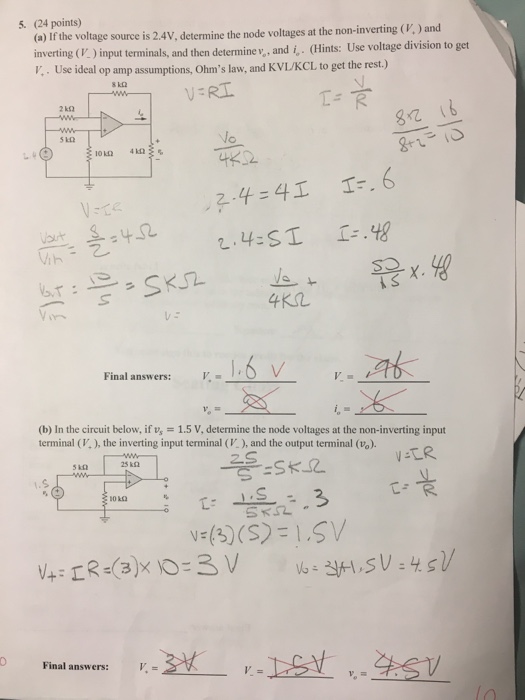 5. (24 points)
(a) If the voltage source is 2.4V, determine the node voltages at the non-inverting (V+) and
inverting (V-) input terminals, and then determine vo, and io. (Hints: Use voltage division to get
V+. Use ideal op amp assumptions, Ohm's law, and KVL/KCL to get the rest.)
8 kΩ
V=RI
I= V/R
2 kΩ
5 kΩ
10 kΩ
4 kΩ
Vo/4KΩ
8×2/8+2 = 16/10
V=IR
2.4=4I I=.6
Vout/Vin = 8/2 = 4Ω
2.4=5I I=.48
Vout/Vin = 10/5 = 5KΩ
Vo/4KΩ +
50/15 x.48
V=
Final answers: V+ = 1.6 V V- = .96
vo = io = 6
(b) In the circuit below, if vs = 1.5 V, determine the node voltages at the non-inverting input
terminal (V+), the inverting input terminal (V-), and the output terminal (vo).
5 kΩ
25 kΩ
25/5 =5KΩ
V=IR
1.5
10 kΩ
I= 1.5/5KΩ =.3
I= V/R
V=(.3)(5)=1.5V
V+= IR=(.3)x10=3V
Vo= 3V+1.5V=4.5V
Final answers: V+ = 3V V- = 1.5V vo = 4.5V